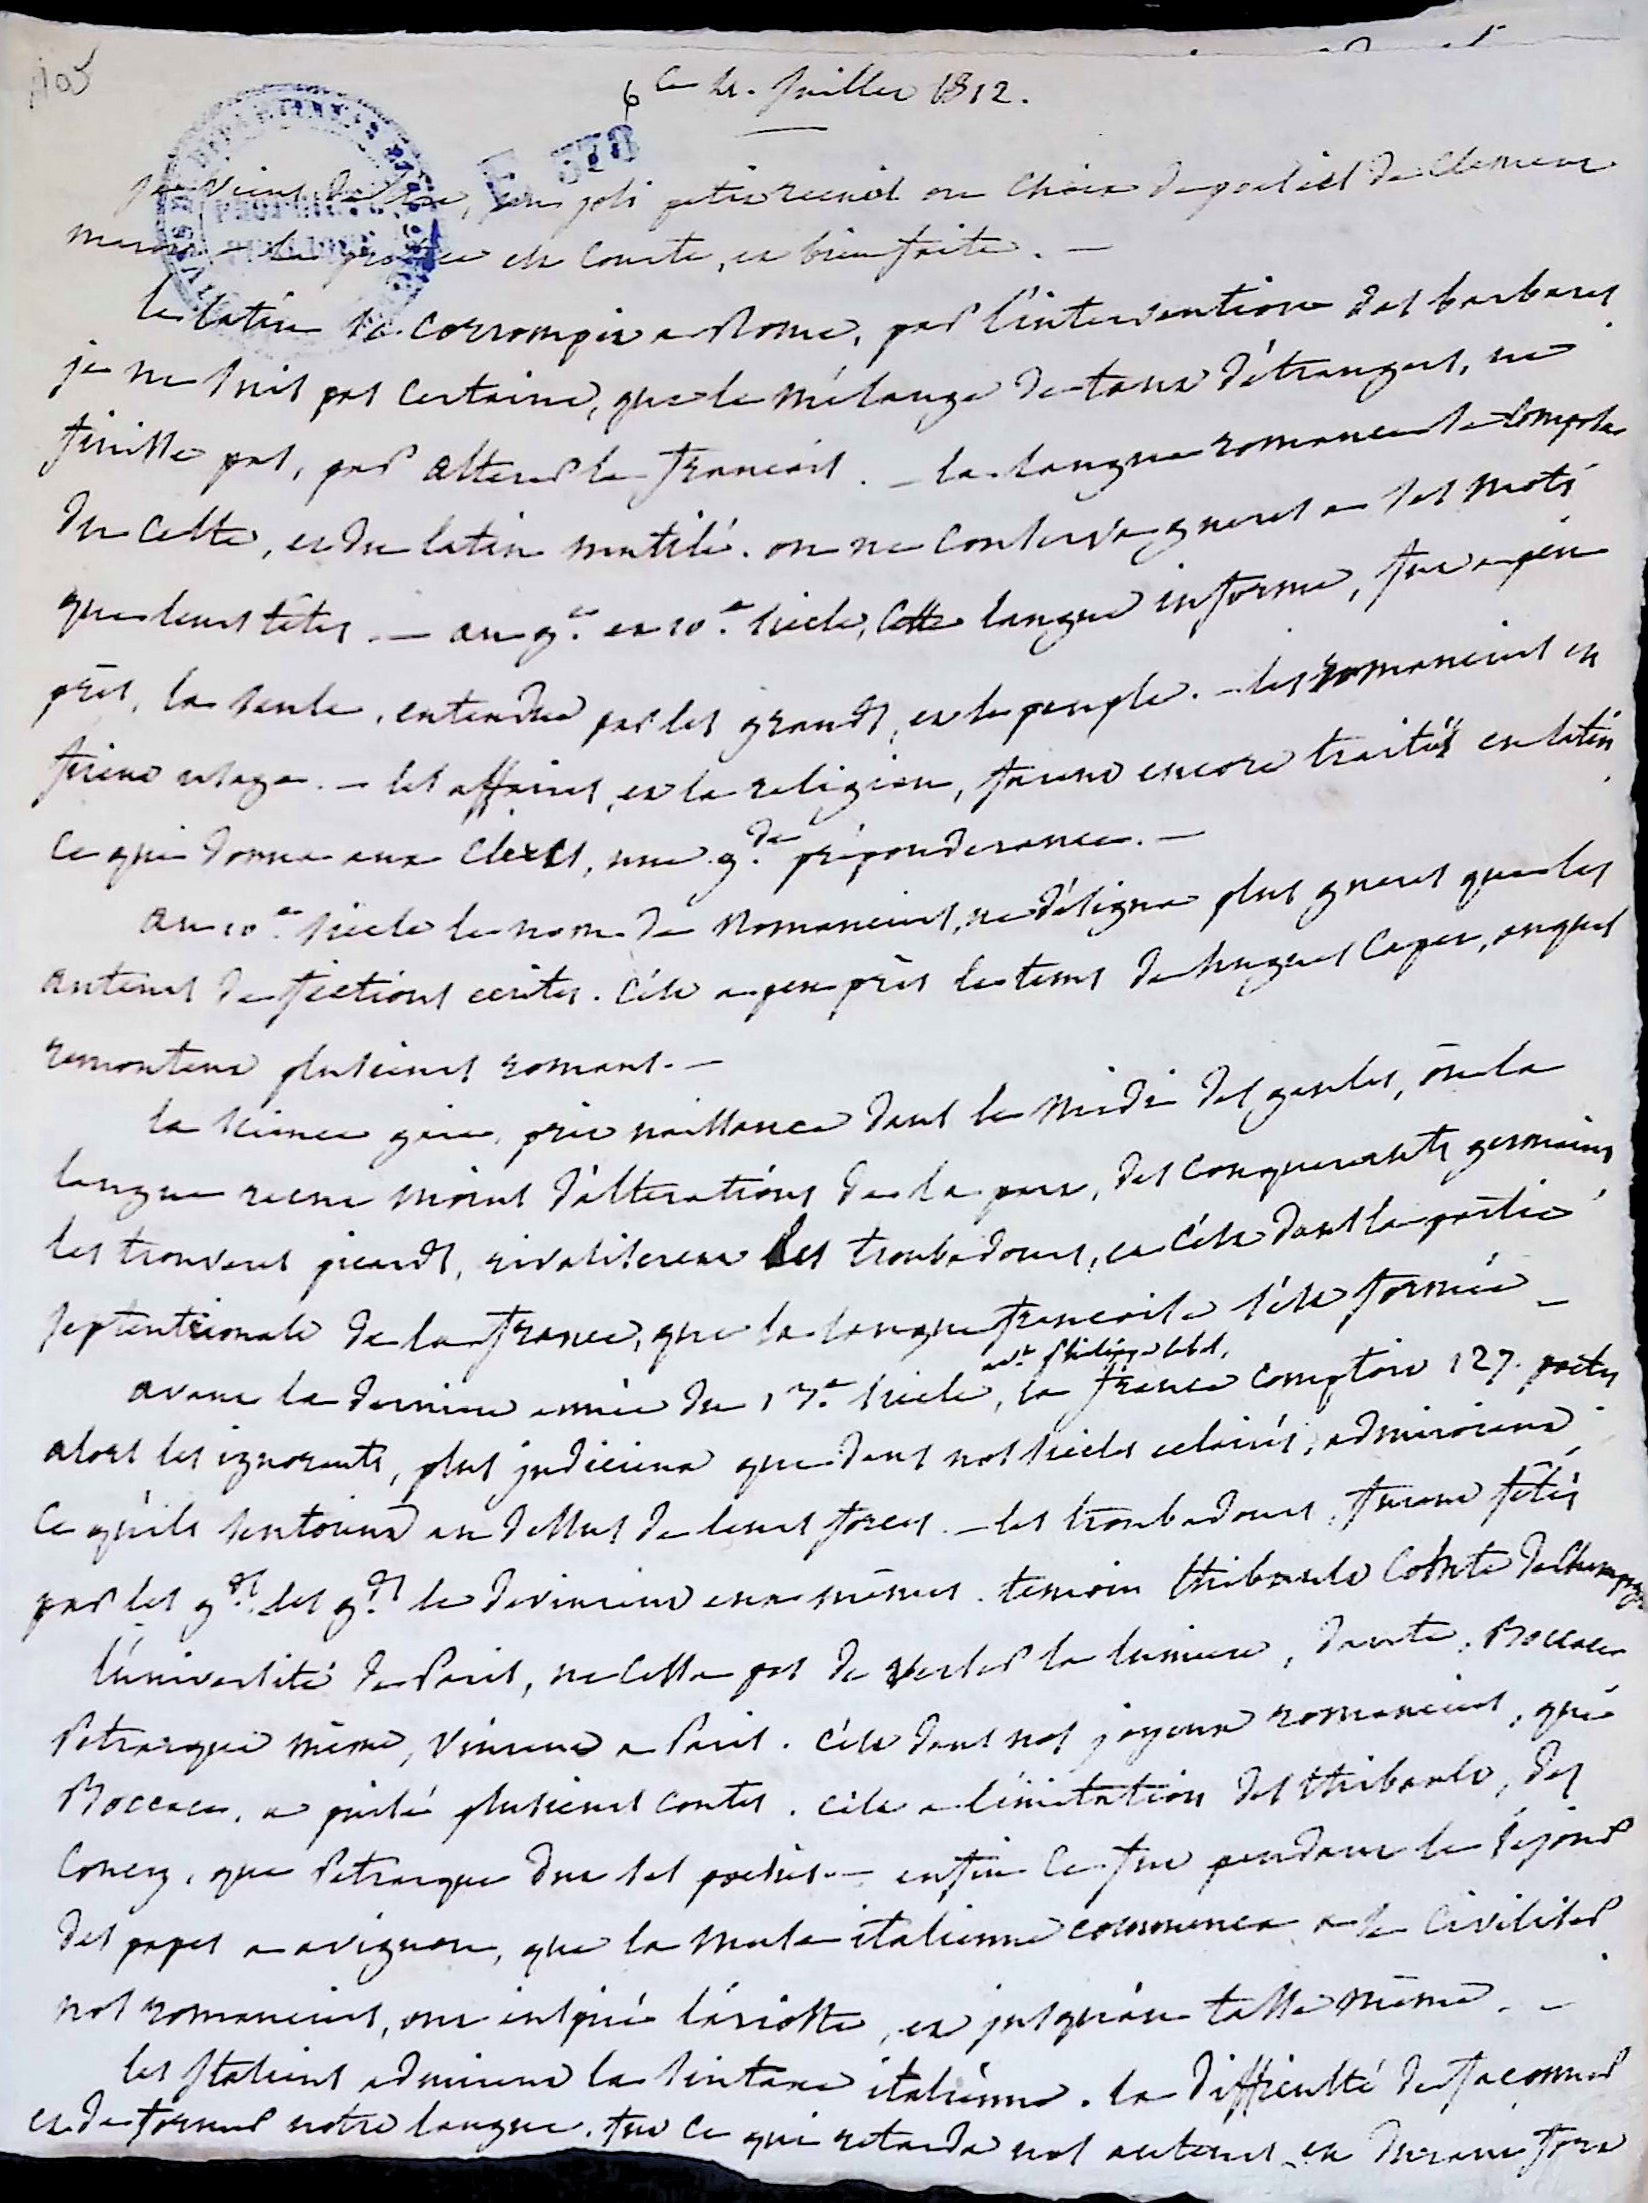 ce 21. juillet 1812.
je viens de lire, un joli petit recueil ou choix de poesies de Clement
marot – la préface est courte, et bien faite. –
le latin se corrompit a Rome, par l'intervention des barbares
je ne suis pas certaine, que le mélange de tant d'étrangers, ne
finisse pas, par alterer le francais. – la langue romance se composa
du celte, et du latin mutilé. on ne conserva gueres a ses mots
que leurs têtes. – au 9e et 10e siecle, cette langue informe, fut a peu
près, la seule, entendue par les grands, et le peuple. – les romanciers en
firent usage. – les affaires, et la religion, furent encore traités en latin
ce qui donna aux clercs, une gde préponderance. –
au 10e siecle le nom de Romanciers, ne désigna plus gueres que les
auteurs de fictions ecrites. c'est a peu près le tems de hugues Capet, auquel
remontent plusieurs romans. –
la science gaie, prit naissance dans le midi des gaules, où la
langue recut moins d'altérations de la part, des conquerants germains
les trouveres picards, rivaliserent les troubadours, et c'est dans la partie
septentrionale de la france, que la langue francoise s'est formée –
avt philippe lebel,
avant la derniere année du 13e siecle, la france comptoit 127. poetes
alors les ignorants, plus judicieux que dans nos siecles eclairés, admiroient
ce qu'ils sentoient au dessus de leurs forces. – les troubadours, furent fêtés
par les gds les gds le devinrent eux mêmes. temoin thibault Comte de Champagne
l'université de Paris, ne cessa pas de verser la lumiere, dante, Boccace
Petrarque même, vinrent a Paris. c'est dans nos joyeux romanciers, que
Boccace, a puisé plusieurs contes. c'est a l'imitation des thibault, des
Coucy, que Petrarque dut ses poesies – enfin ce fut pendant le séjour
des papes a avignon, que la muse italienne commenca a se civiliser
nos romanciers, ont inspiré l'arioste, et jusqu'au tasse même. –
les Italiens admirent la sintaxe italienne. la difficulté de faconner
et de former notre langue. fut ce qui retarda nos auteurs, et durant